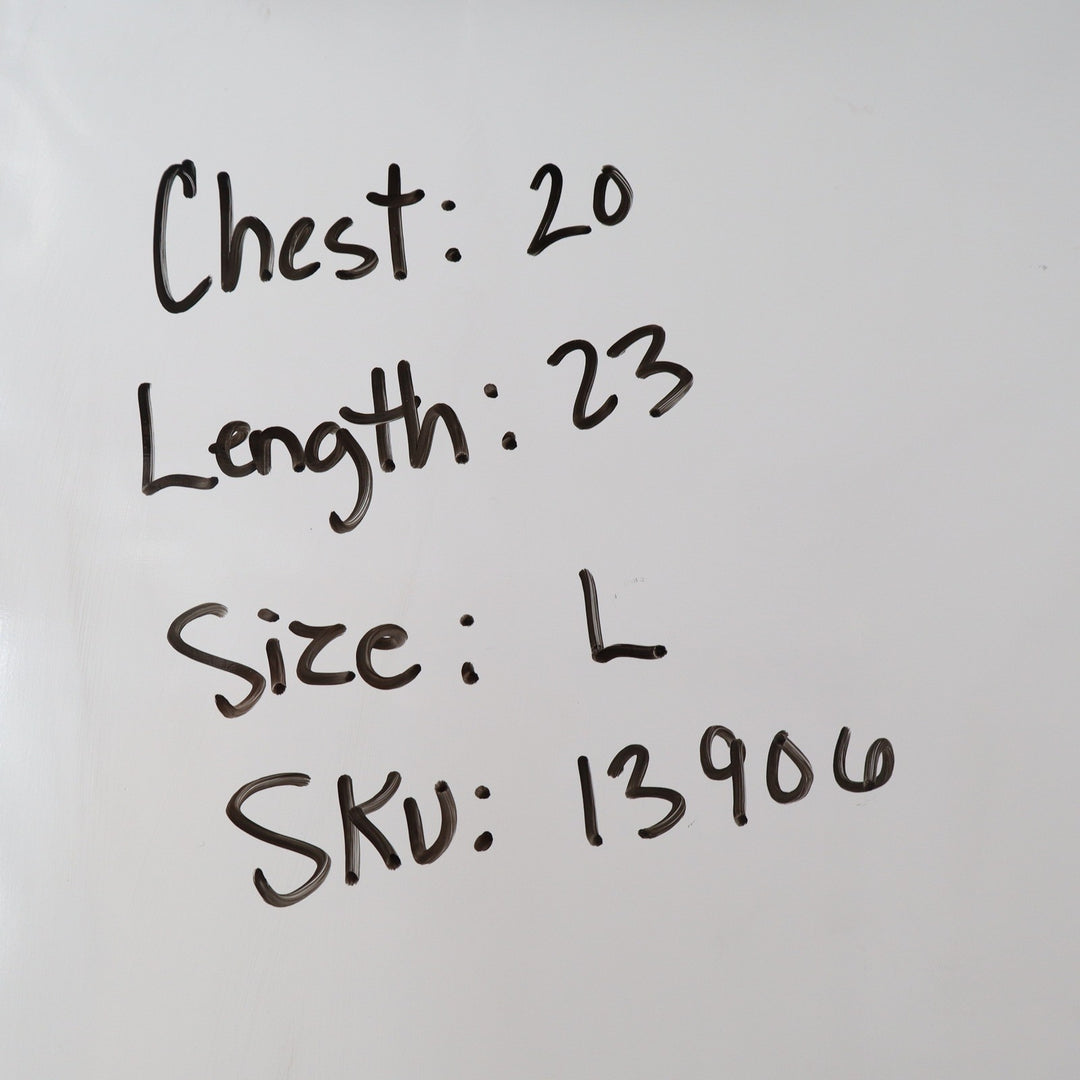 Chest: 20
Length: 23
Size: L
SKU: 13906